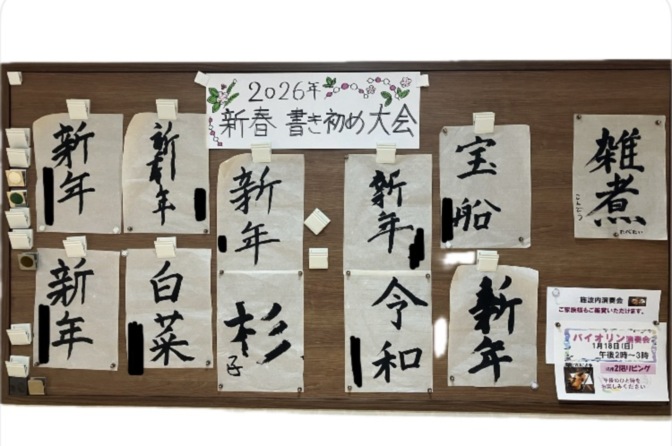 2026年
新春 書き初め大会
新年
新年
新年
新年
宝船
雑煮
こんぶつ
新年
白菜
杉
子
令和
新年
施設内演奏会
ご家族様もご鑑賞いただけます。
バイオリン演奏会
1月18日(日)
午後2時～3時
2階リビング
お楽しみください